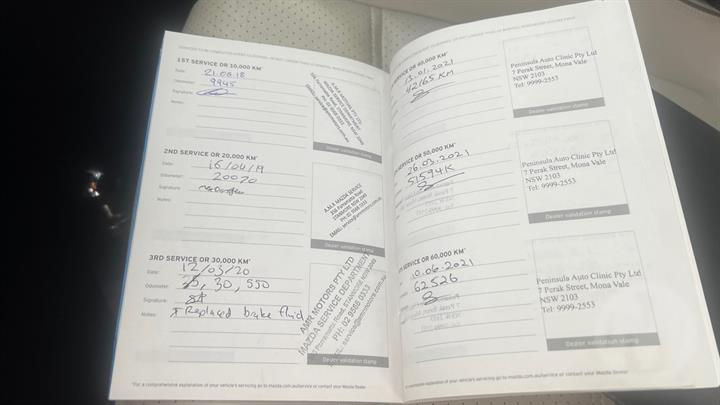 1ST SERVICE OR 10,000 KM*
Date: 21.06.18
Odometer: 9945
Signature:
Notes:
A.M.R MOTORS PTY LTD
MAZDA SERVICE DEPARTMENT
STANMORE NSW 2048
Dealer validation stamp
2ND SERVICE OR 20,000 KM*
Date: 16/04/19
Odometer: 20020
Signature:
Notes:
A.M.R MAZDA SERVICE
STANMORE NSW 2048
Dealer validation stamp
3RD SERVICE OR 30,000 KM*
Date: 12/03/20
Odometer: 30,550
Signature:
Notes: * Replaced brake fluid
AMR MOTORS PTY LTD
MAZDA SERVICE DEPARTMENT
PH: 02 9568 0333
Dealer validation stamp
*For a comprehensive explanation of your vehicle's servicing go to mazda.com.au/service or contact your Mazda Dealer
SERVICE OR 40,000 KM*
13.01.2021
42165 KM
Peninsula Auto Clinic Pty Ltd
7 Perak Street, Mona Vale
NSW 2103
Tel: 9999-2553
Dealer validation stamp
SERVICE OR 50,000 KM*
26.03.2021
51594K
Peninsula Auto Clinic Pty Ltd
7 Perak Street, Mona Vale
NSW 2103
Tel: 9999-2553
Dealer validation stamp
SERVICE OR 60,000 KM*
10.06.2021
62526
Peninsula Auto Clinic Pty Ltd
7 Perak Street, Mona Vale
NSW 2103
Tel: 9999-2553
Dealer validation stamp
explanation of your vehicle's servicing go to mazda.com.au/service or contact your Mazda Dealer